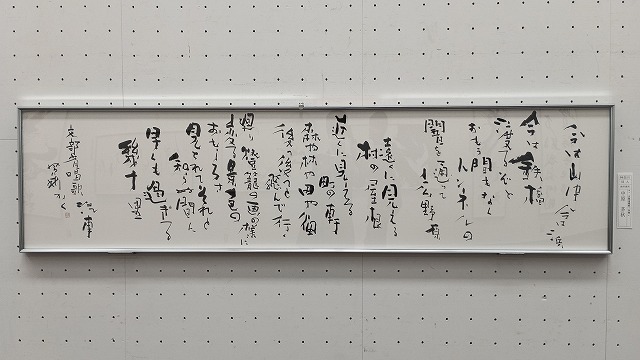 今は山中 今は浜
今は鉄橋
渡るぞと
おもう間もなく
トンネルの
闇を通って
広野原
遠くに見える
村の屋根
近くに見える
町の軒
森や林や田や畑
後へ後へと飛んで行く
廻り燈籠の画の様に
変る景色の
おもしろさ
見とれてそれと
知らぬ間に
早くも過ぎる
幾十里
文部省唱歌 汽車